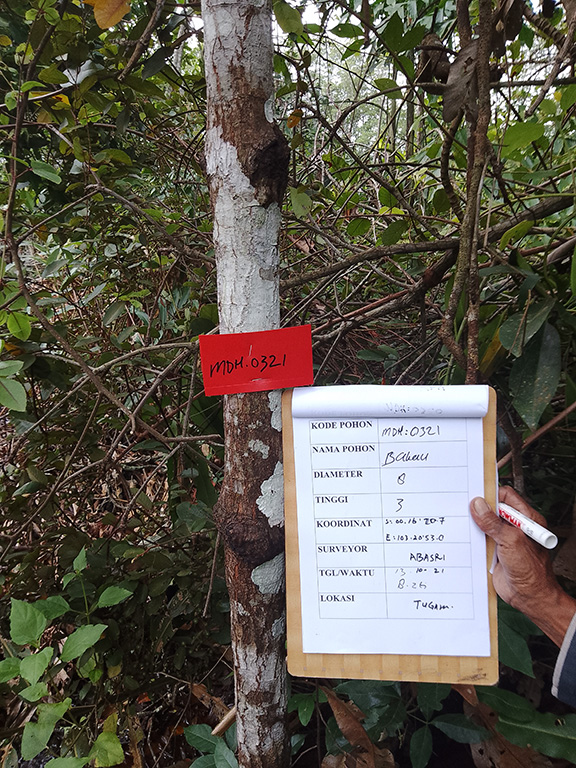 MDH:0321
KODE POHON MDH:0321
NAMA POHON
DIAMETER 8
TINGGI 3
KOORDINAT S:00.16'20.7
E:103.20'53.0
SURVEYOR ABASRI
TGL/WAKTU 13 10-21
8:26
LOKASI TUGAM.